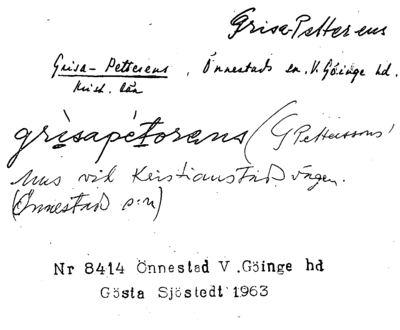 Grisa-Petterens
Grisa-Petterens, Önnestads sn. V. Göinge hd.
Krist. län
grisapétorens (G Petterssons'
hus vid Kristianstadsvägen.
(Önnestad s:n)
Nr 8414 Önnestad V .Göinge hd
Gösta Sjöstedt 1963